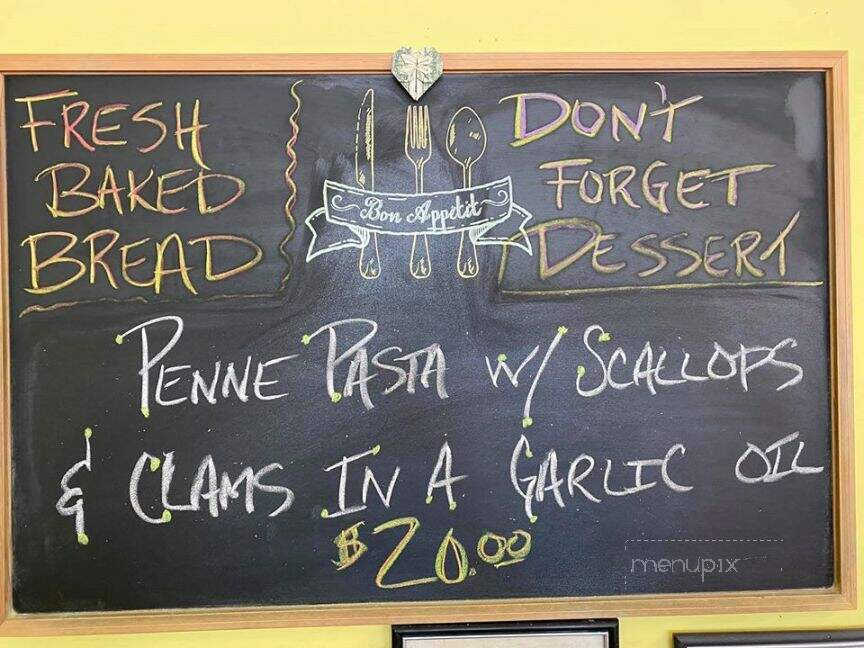 FRESH
BAKED
BREAD
Bon Appétit
DON'T
FORGET
DESSERT
PENNE PASTA W/ SCALLOPS
& CLAMS IN A GARLIC OIL
$20.00
menupix